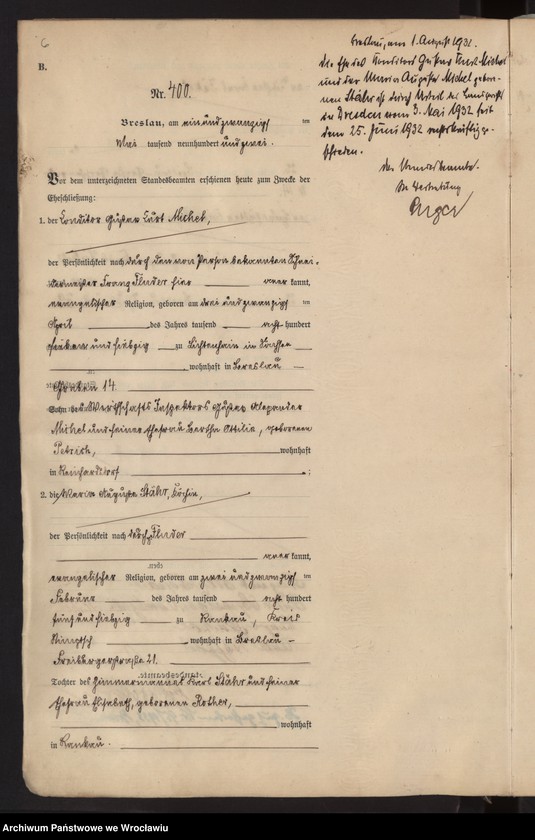 6
B.
Nr. 400.
Breslau, am einundzwanzigsten
Mai tausend neunhundert und zwei.
Vor dem unterzeichneten Standesbeamten erschienen heute zum Zwecke der
Eheschließung:
1. der Conditor Gustav Kurt Michel,
der Persönlichkeit nach durch den von Person bekannten Schnei-
dermeister Franz Fluder hier anerkannt,
evangelischer Religion, geboren am dreiundzwanzigsten
April des Jahres tausend acht hundert
sieben und siebzig zu Lichtenhain in Sachsen
, wohnhaft in Breslau –
Graben 14.
Sohn des Wirthschafts Inspektors Gustav Alexander
Michel und seiner Ehefrau Bertha Ottilie, geborenen
Petrich, wohnhaft
in Reinhardsdorf ;
2. die Maria Auguste Stähr, Köchin,
der Persönlichkeit nach durch Fluder
anerkannt,
evangelischer Religion, geboren am zwei und zwanzigsten
Februar des Jahres tausend acht hundert
fünf und siebzig zu Rankau, Kreis
Nimptsch, wohnhaft in Breslau –
Freiburgerstraße 21.
Tochter des Zimmermanns Karl Stähr und seiner
Ehefrau Elisabeth, geborenen Rother,
wohnhaft
in Rankau.
Breslau, am 1. August 1932.
Die Ehe des Konditors Gustav Kurt Michel
und der Maria Auguste Michel gebore-
nen Stähr ist durch Urteil des Landgerichts
in Dresden vom 3. Mai 1932 seit
dem 25. Juni 1932 rechtskräftig ge-
schieden.
Der Standesbeamte.
In Vertretung
Archiwum Państwowe we Wrocławiu